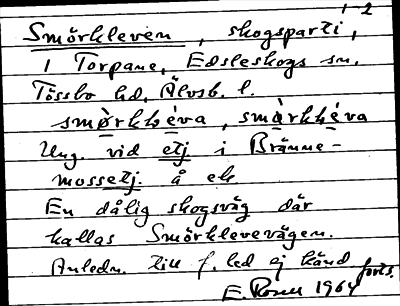 1-2
Smörkleven, skogsparti,
i Torpane, Edsleskogs sn.
Tössbo hd, Älvsb. l.
smø̀rkḷéva, smàrkḷéva
Ung. vid etj i Brämne-
mossetj. å ek
En dålig skogsväg där
kallas Smörklevevägen.
Anledn. till f. led ej känd
forts.
E. Rosell 1964